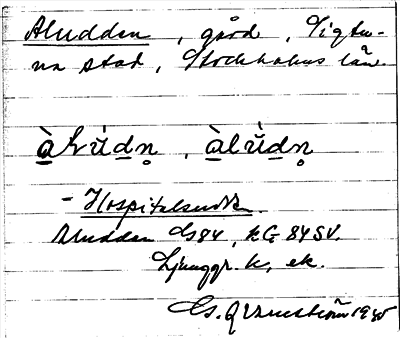 Aludden, gård, Sigtu-
na stad, Stockholms län.
àlu̇̀dn̥, àlu̇̀dn̥
- Hospitalsudden.
Aludden GS 84, hG 84 SV.
Ljunggr. k, ek.
Cs. Qvarnström 1945